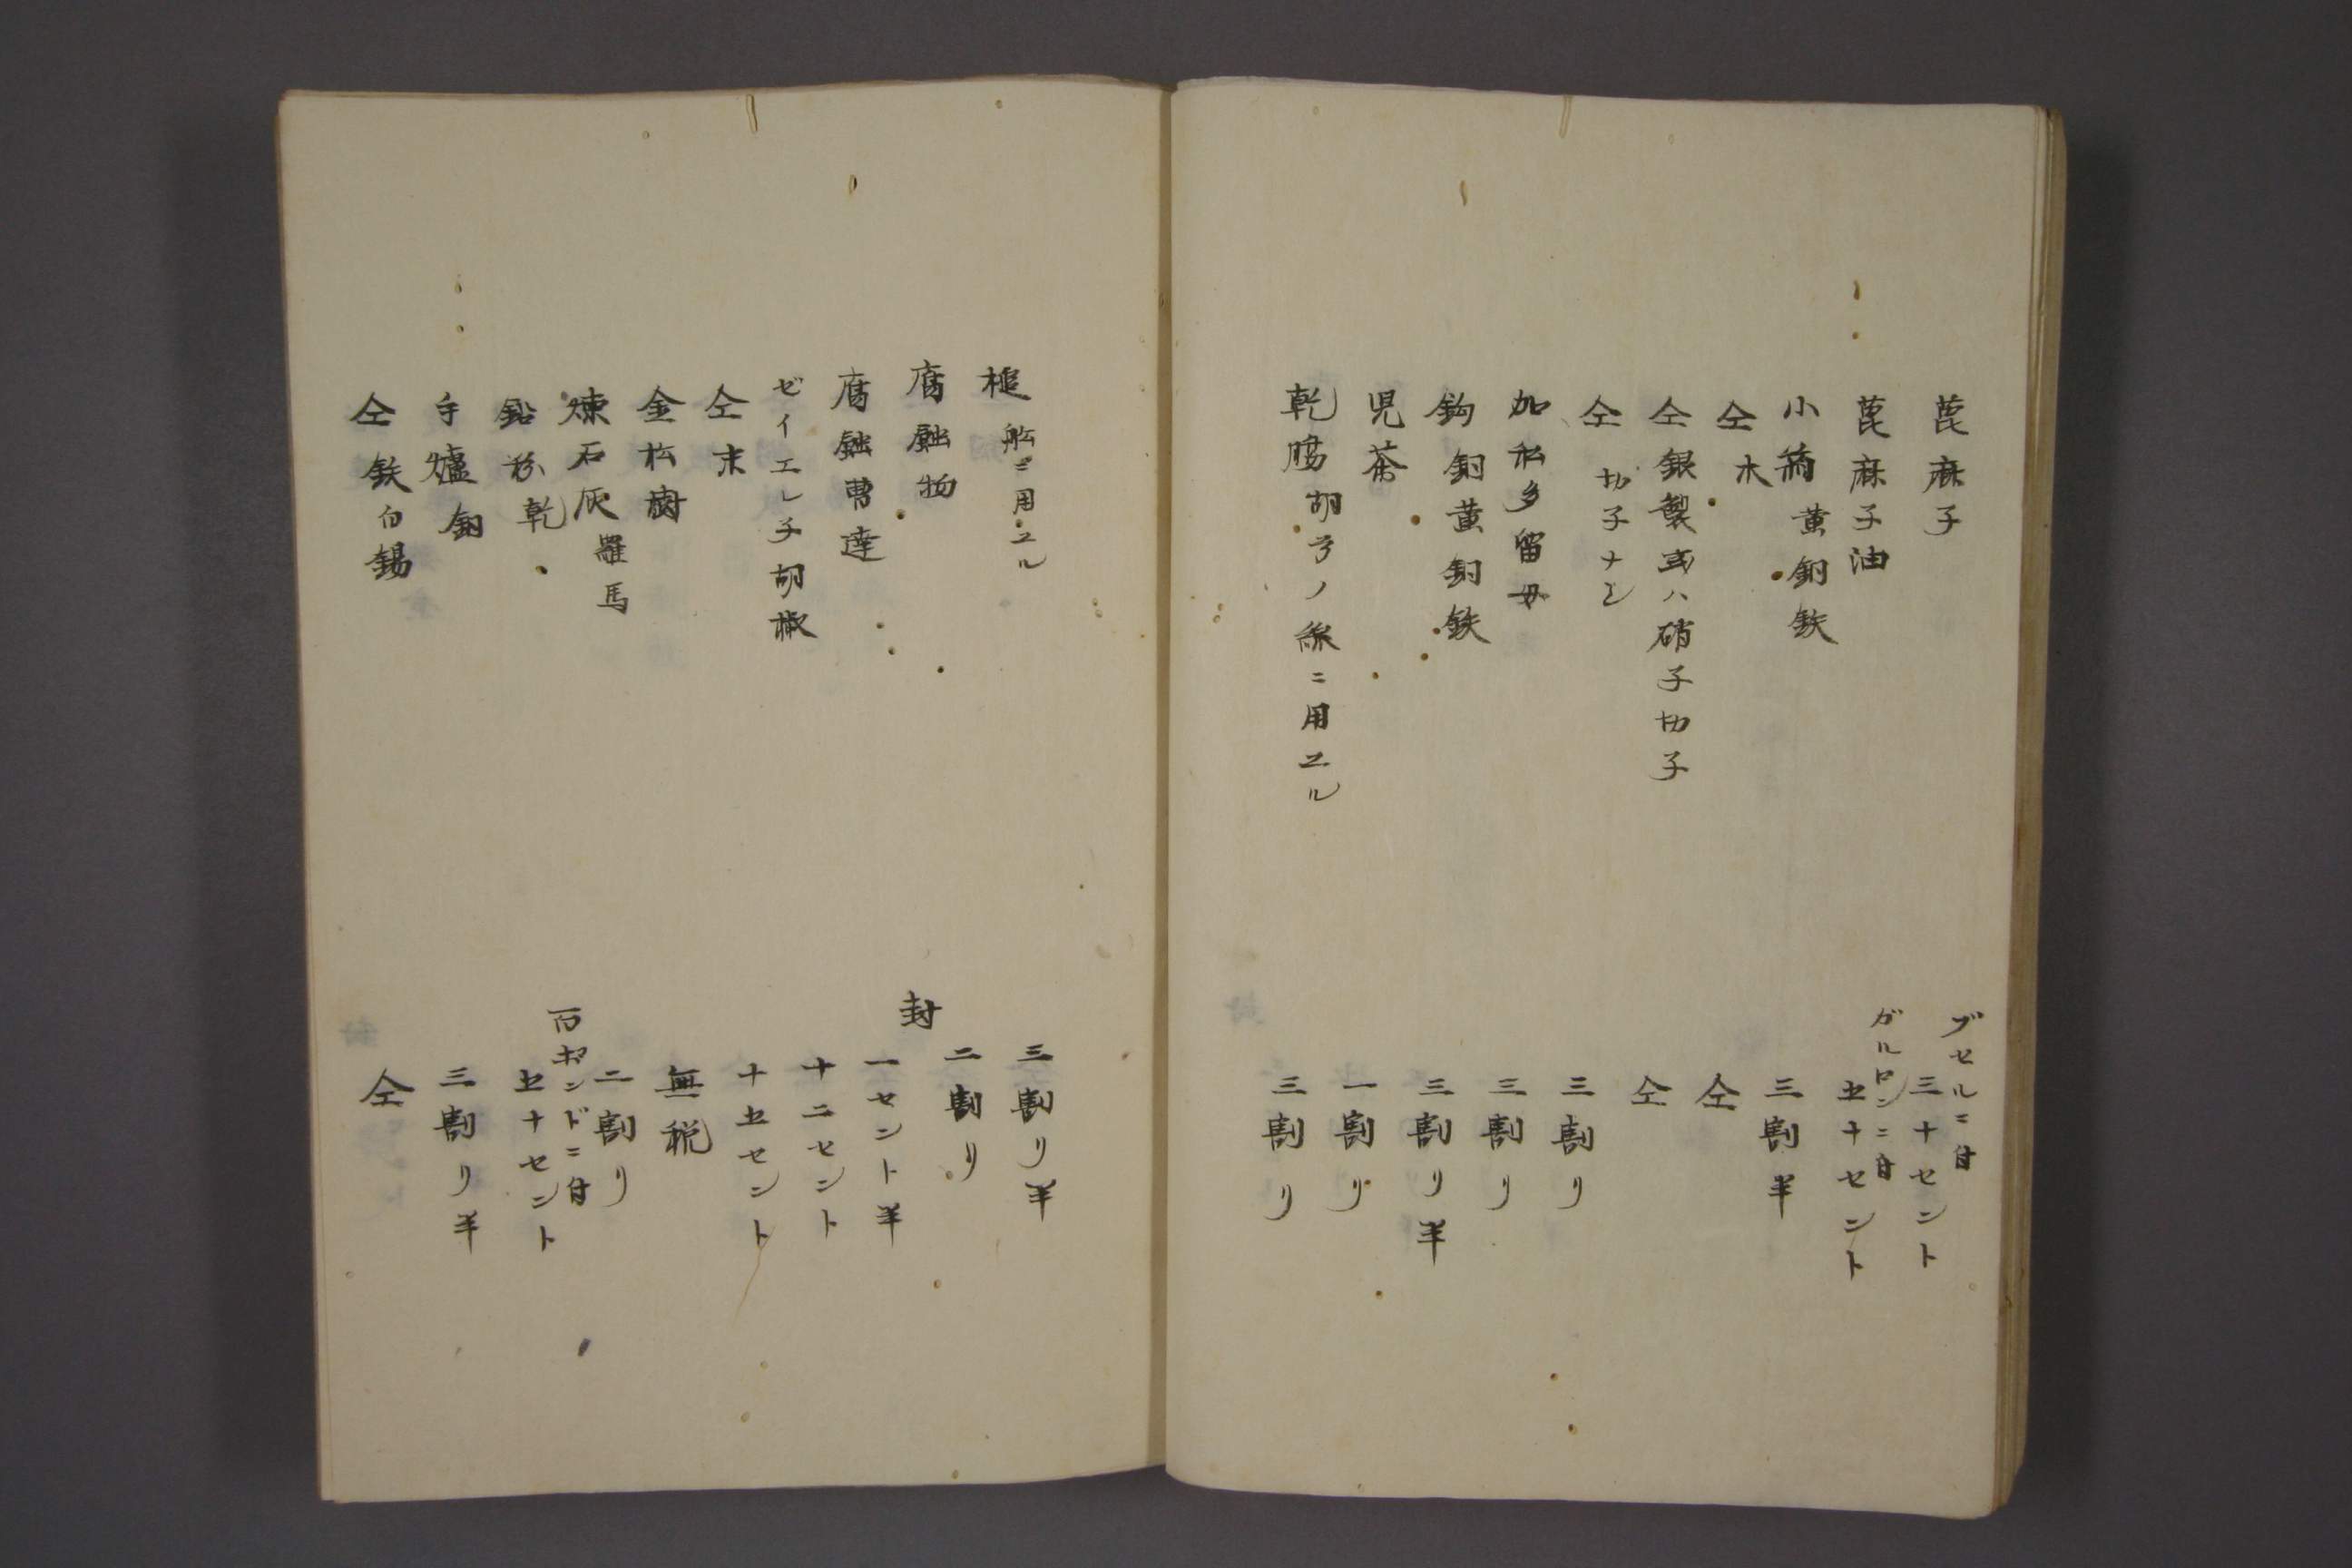 萞麻子　ブセルニ付三十セント
萞麻子油　ガルロンニ付五十セント
小瓶黄銅鉄　三割半
仝木　仝
仝銀製或ハ硝子切子　仝
仝切子ナシ　三割リ
加私多留母　三割リ
鈎銅黄銅鉄　三割リ半
児茶　一割リ
乾腸胡弓ノ線ニ用ユル　三割リ
槌舩ニ用ユル　三割リ半
腐蝕物　二割リ
腐蝕曹達　封一セント半
ゼイエレ子胡椒　十二セント
仝末　十五セント
金松樹　無税
煉石灰羅馬　二割リ
鉛粉乾　百ポンドニ付五十セント
手爐銅　三割リ半
仝鉄白錫　仝